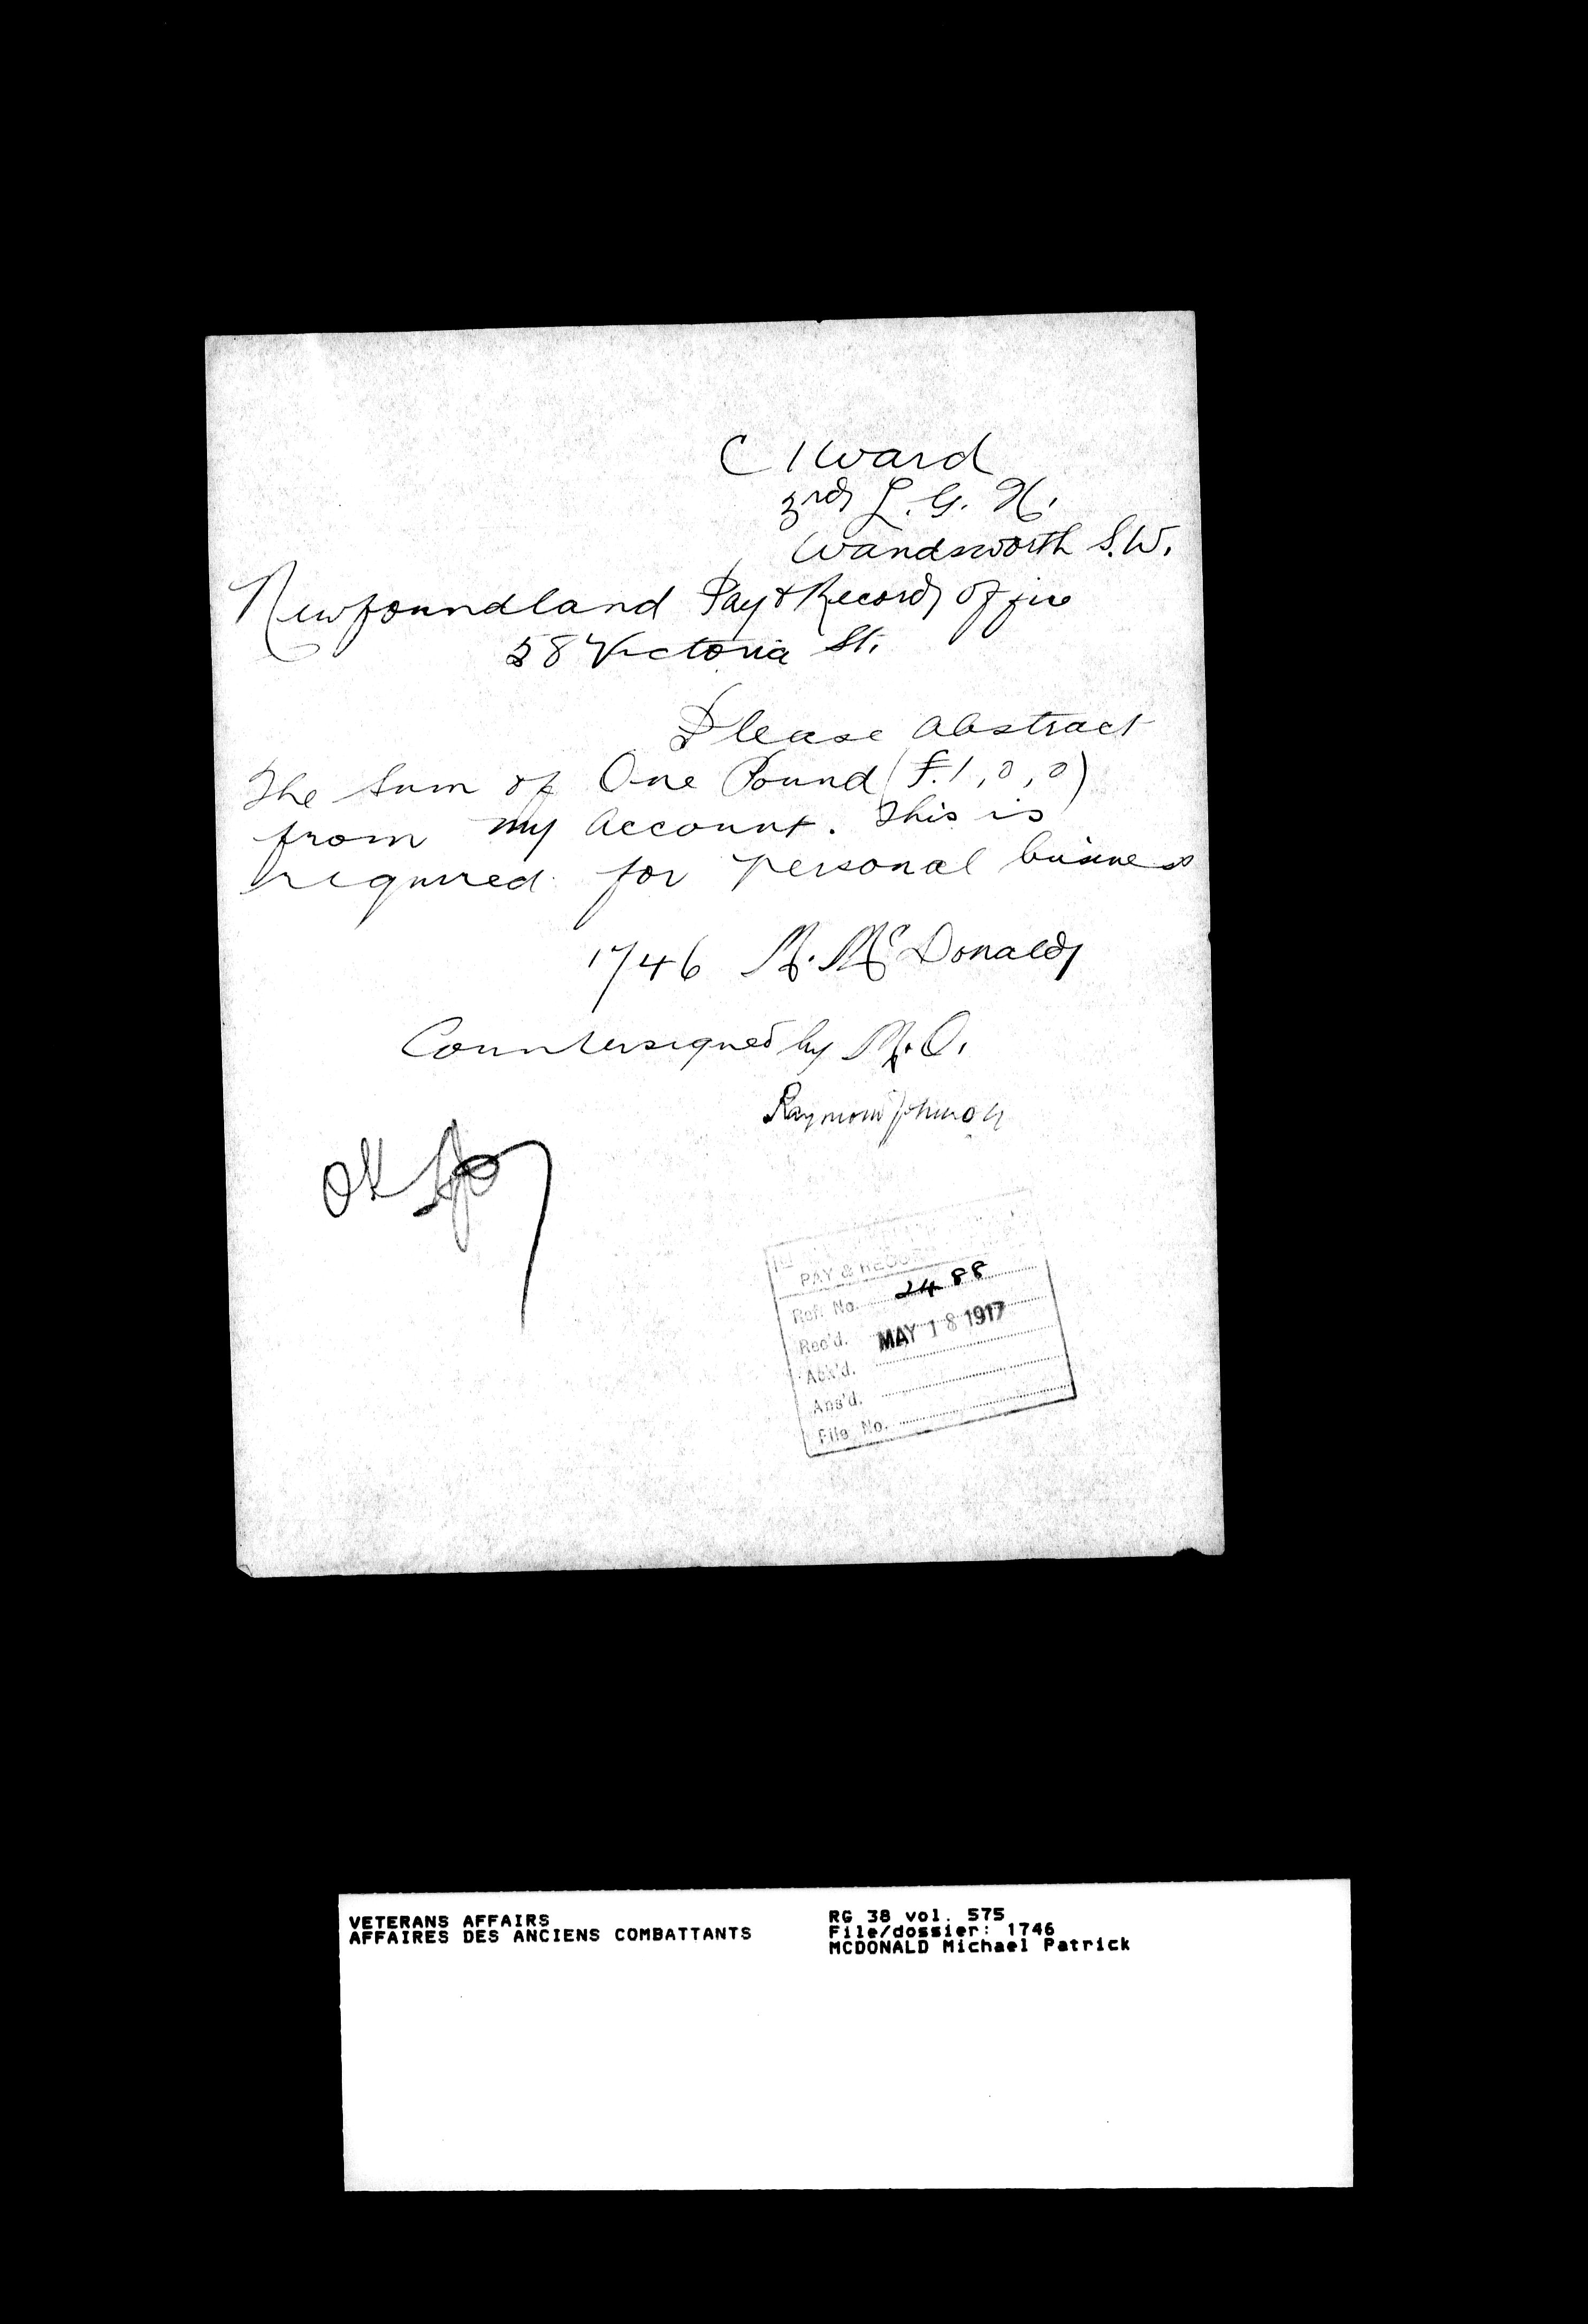 C 1 Ward
3rd L. G. H.
Wandsworth S.W.
Newfoundland Pay & Record Office
58 Victoria St.
Please abstract
the sum of One Pound (£.1,0,0)
from my account. This is
required for personal business
1746 M. McDonald
Countersigned by M.O.
Raymond Johnson
OK
PAY & RECORD
Ref. No. 2488
Rec'd. MAY 18 1917
Ack'd.
Ans'd.
File No.
VETERANS AFFAIRS
AFFAIRES DES ANCIENS COMBATTANTS
RG 38 vol. 575
File/dossier: 1746
MCDONALD Michael Patrick